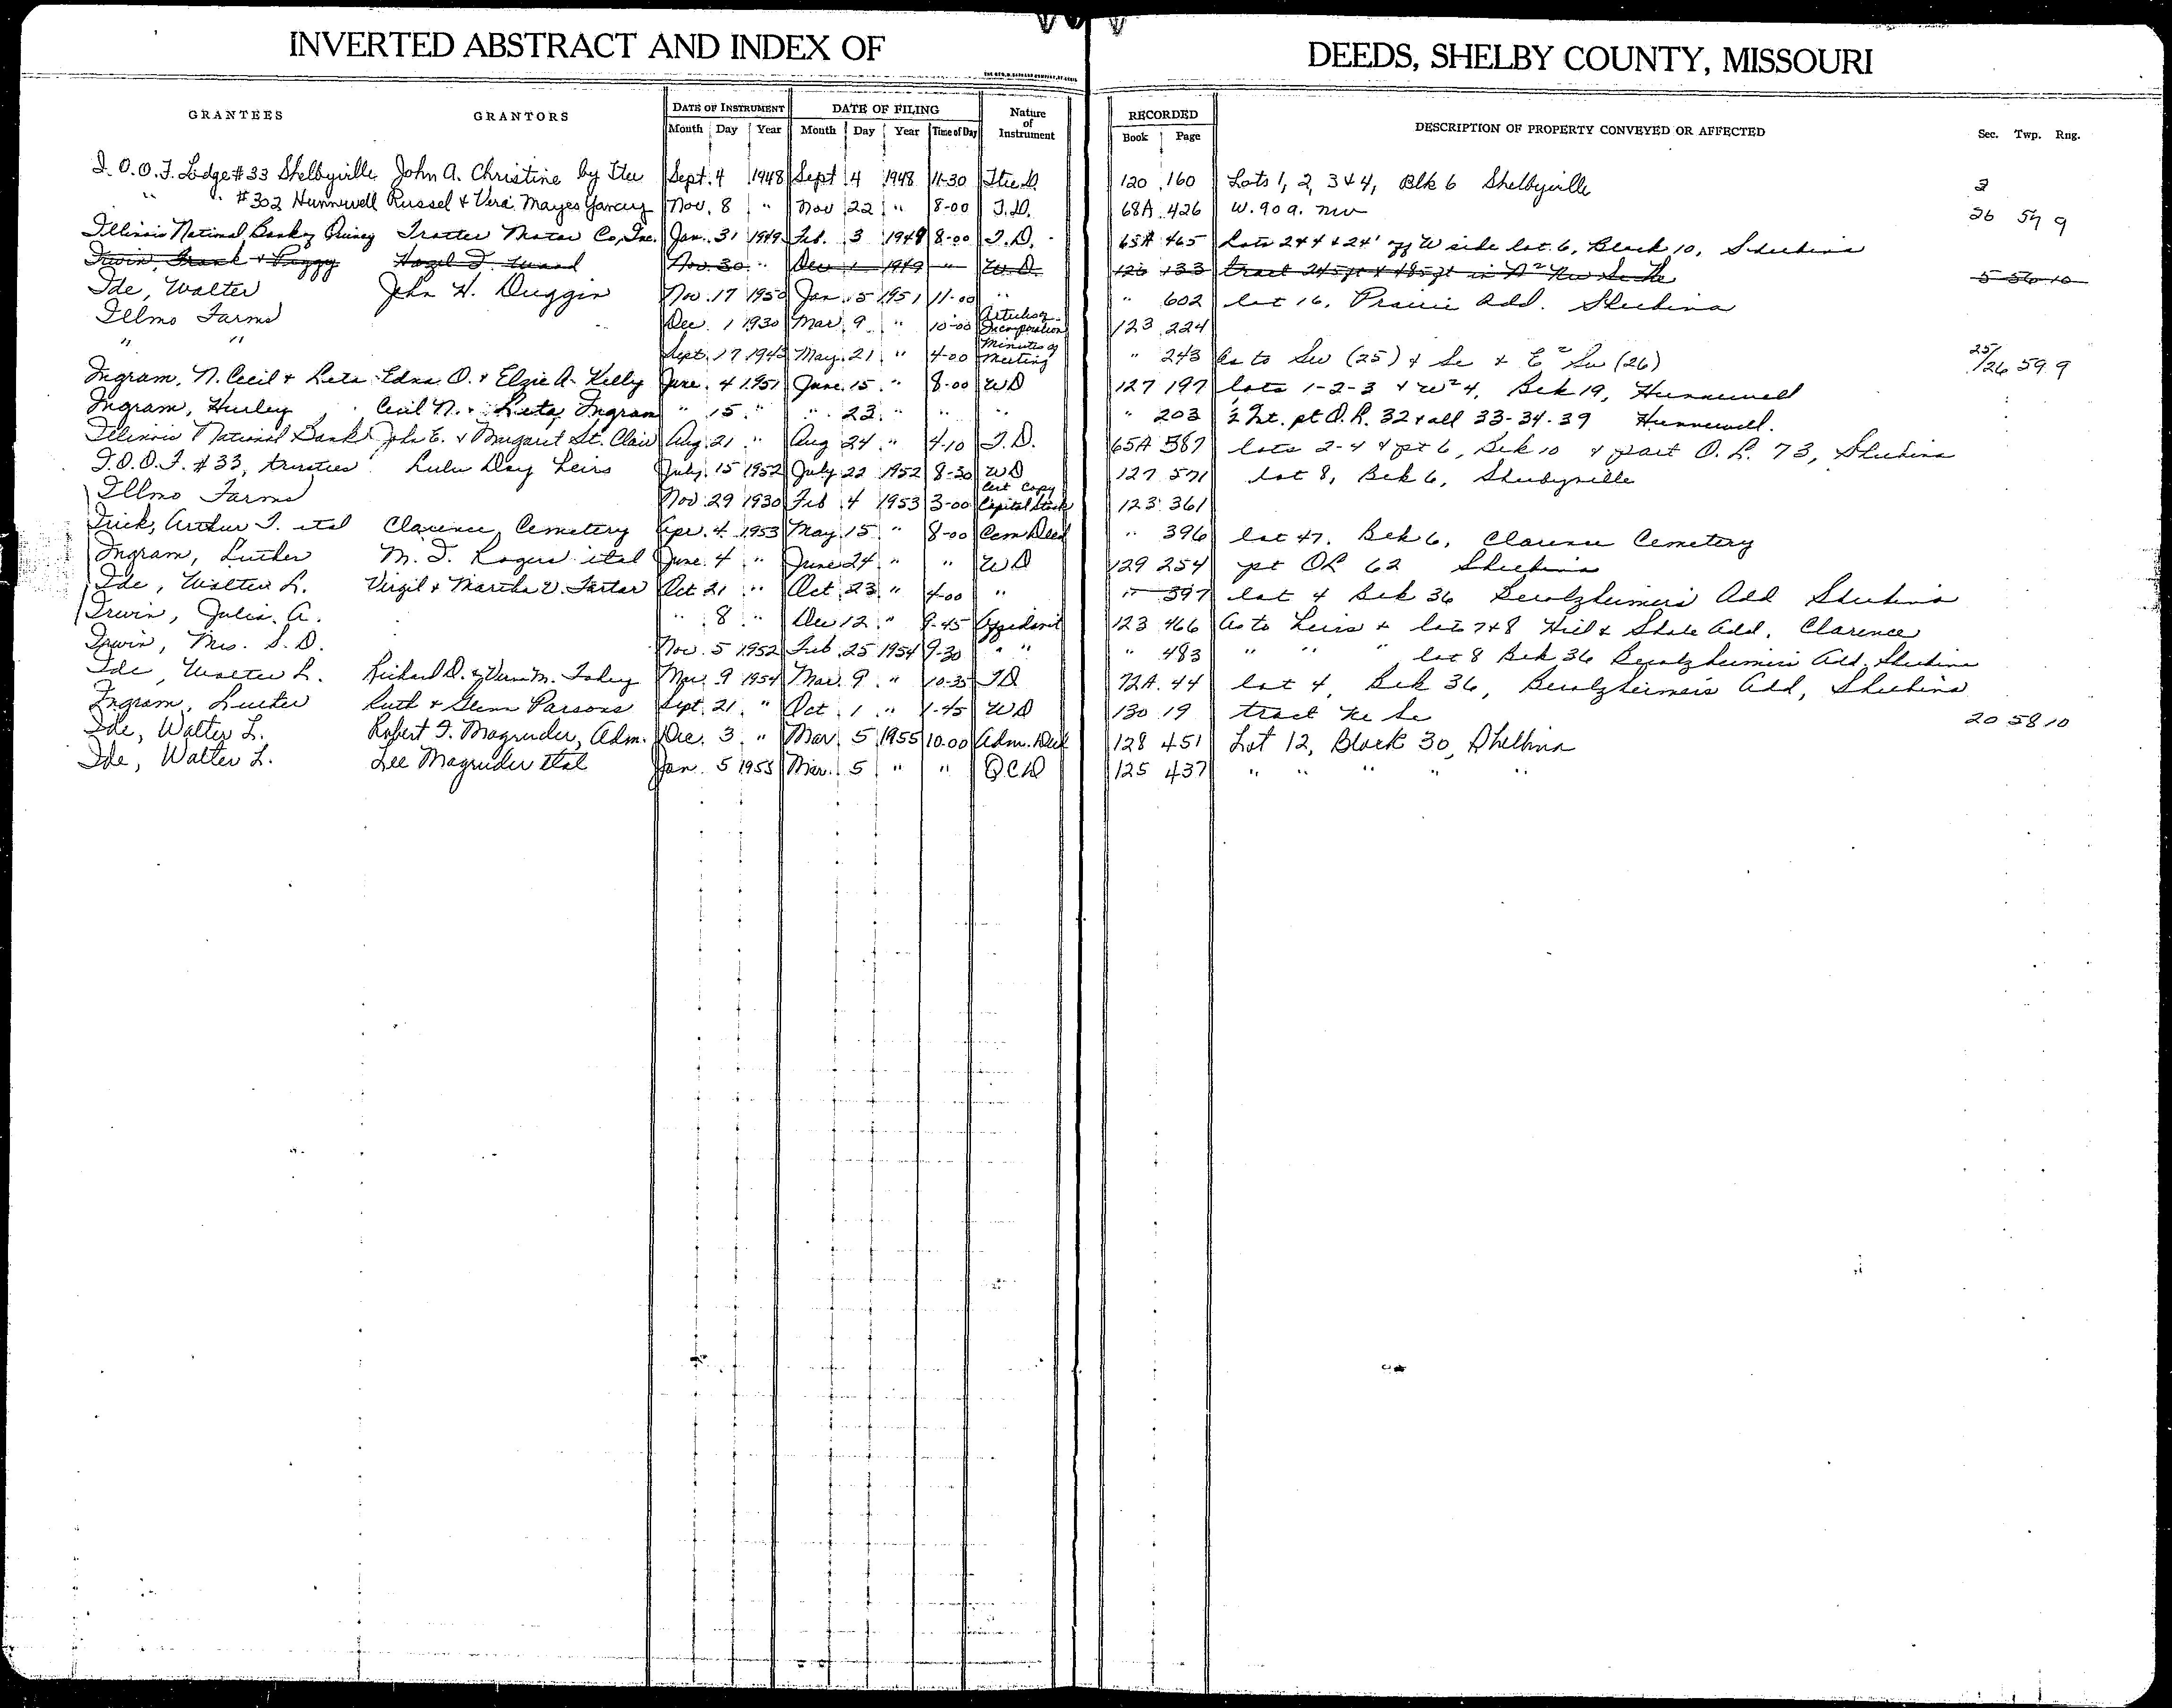 INVERTED ABSTRACT AND INDEX OF DEEDS, SHELBY COUNTY, MISSOURI
GRANTEES GRANTORS DATE OF INSTRUMENT DATE OF FILING Nature of Instrument RECORDED DESCRIPTION OF PROPERTY CONVEYED OR AFFECTED Sec. Twp. Rng.
Month Day Year Month Day Year Time of Day Book Page
I.O.O.F. Lodge #33 Shelbyville John A. Christine by Tree Sept. 4 1948 Sept 4 1948 11-30 Tree D. 120 160 Lots 1, 2, 3 & 4, Blk 6 Shelbyville 2
" " #302 Hunnewell Russel & Vera Mayes Yancey Nov. 8 " Nov 22 " 8-00 T.D. 68A 426 W. 90 a. NW 26 57 9
Illinois National Bank of Quincy Trotter Motor Co, Inc. Jan. 31 1949 Feb. 3 1949 8-00 T.D. 65A 465 Lots 2 & 4 & 24' off W side lot 6, Block 10, Shelbina
Irwin, Frank & Peggy Hazel F. Wood Nov. 30 " Dec 1 1949 " W D 126 133 tract 5 56 10
Ide, Walter John H. Duggin Nov. 17 1950 Jan. 5 1951 11-00 " " 602 lot 16, Prairie Add. Shelbina
Illmo Farms Dec. 1 1930 Mar. 9 " 10-00 Articles of Incorporation 123 224
" " Sept. 17 1942 May. 21 " 4-00 Minutes of Meeting " 243 As to Sw (25) & Se & E 2 Sw (26) 25/26 59 9
Ingram, N. Cecil & Leta Edna O. & Elzie A. Kelly June. 4 1951 June. 15 " 8-00 WD 127 197 lots 1-2-3 & W 2 4, Blk 19, Hunnewell
Ingram, Hurley Cecil N. & Leta Ingram " 15 " " 23 " " " " 203 ½ Int. pt O.L. 32 & all 33-34-39 Hunnewell.
Illinois National Bank John E. & Margaret St. Clair Aug. 21 " Aug 24 " 4-10 T.D. 65A 587 lots 2-4 & pt 6, Blk 10 & part O.L. 73, Shelbina
I.O.O.F. #33, trustees Lulu Day heirs July 15 1952 July 22 1952 8-30 WD 127 571 lot 8, Blk 6, Shelbyville
Illmo Farms Nov. 29 1930 Feb 4 1953 3-00 Cert Copy Capital Stock 123 361
Frick, Arthur T. etal Clarence Cemetery Apr. 4 1953 May 15 " 8-00 Cem Deed " 396 lot 47, Blk 6, Clarence Cemetery
Ingram, Luther M. F. Rogers etal June. 4 " June 24 " " WD 129 254 pt OL 62 Shelbina
Ide, Walter L. Virgil & Martha V. Tartar Oct 21 " Oct 23 " 4-00 " " 397 lot 4 Blk 36 Bewlzheimer's Add Shelbina
Irwin, Julia. A. " 8 " Dec 12 " 9-45 Affidavit 123 466 As to heirs & lots 7 & 8 Hill & Shale Add. Clarence
Irwin, Mrs. S. D. Nov. 5 1952 Feb 25 1954 9-30 " " " 483 " " " lot 8 Blk 36 Bewlzheimer's Add. Shelbina
Ide, Walter L. Richard D. & Verna M. Foley Mar. 9 1954 Mar. 9 " 10-35 TD 72A 44 lot 4, Blk 36, Bewlzheimer's Add, Shelbina
Ingram, Luther Ruth & Glenn Parsons Sept. 21 " Oct 1 " 1-45 WD 130 19 tract Ne Se 20 58 10
Ide, Walter L. Robert F. Magruder, Adm. Dec. 3 " Mar. 5 1955 10.00 Adm. Deed 128 451 Lot 12, Block 30, Shelbina
Ide, Walter L. Lee Magruder etal Jan. 5 1955 Mar. 5 " " Q.C.D 125 437 " " " " "